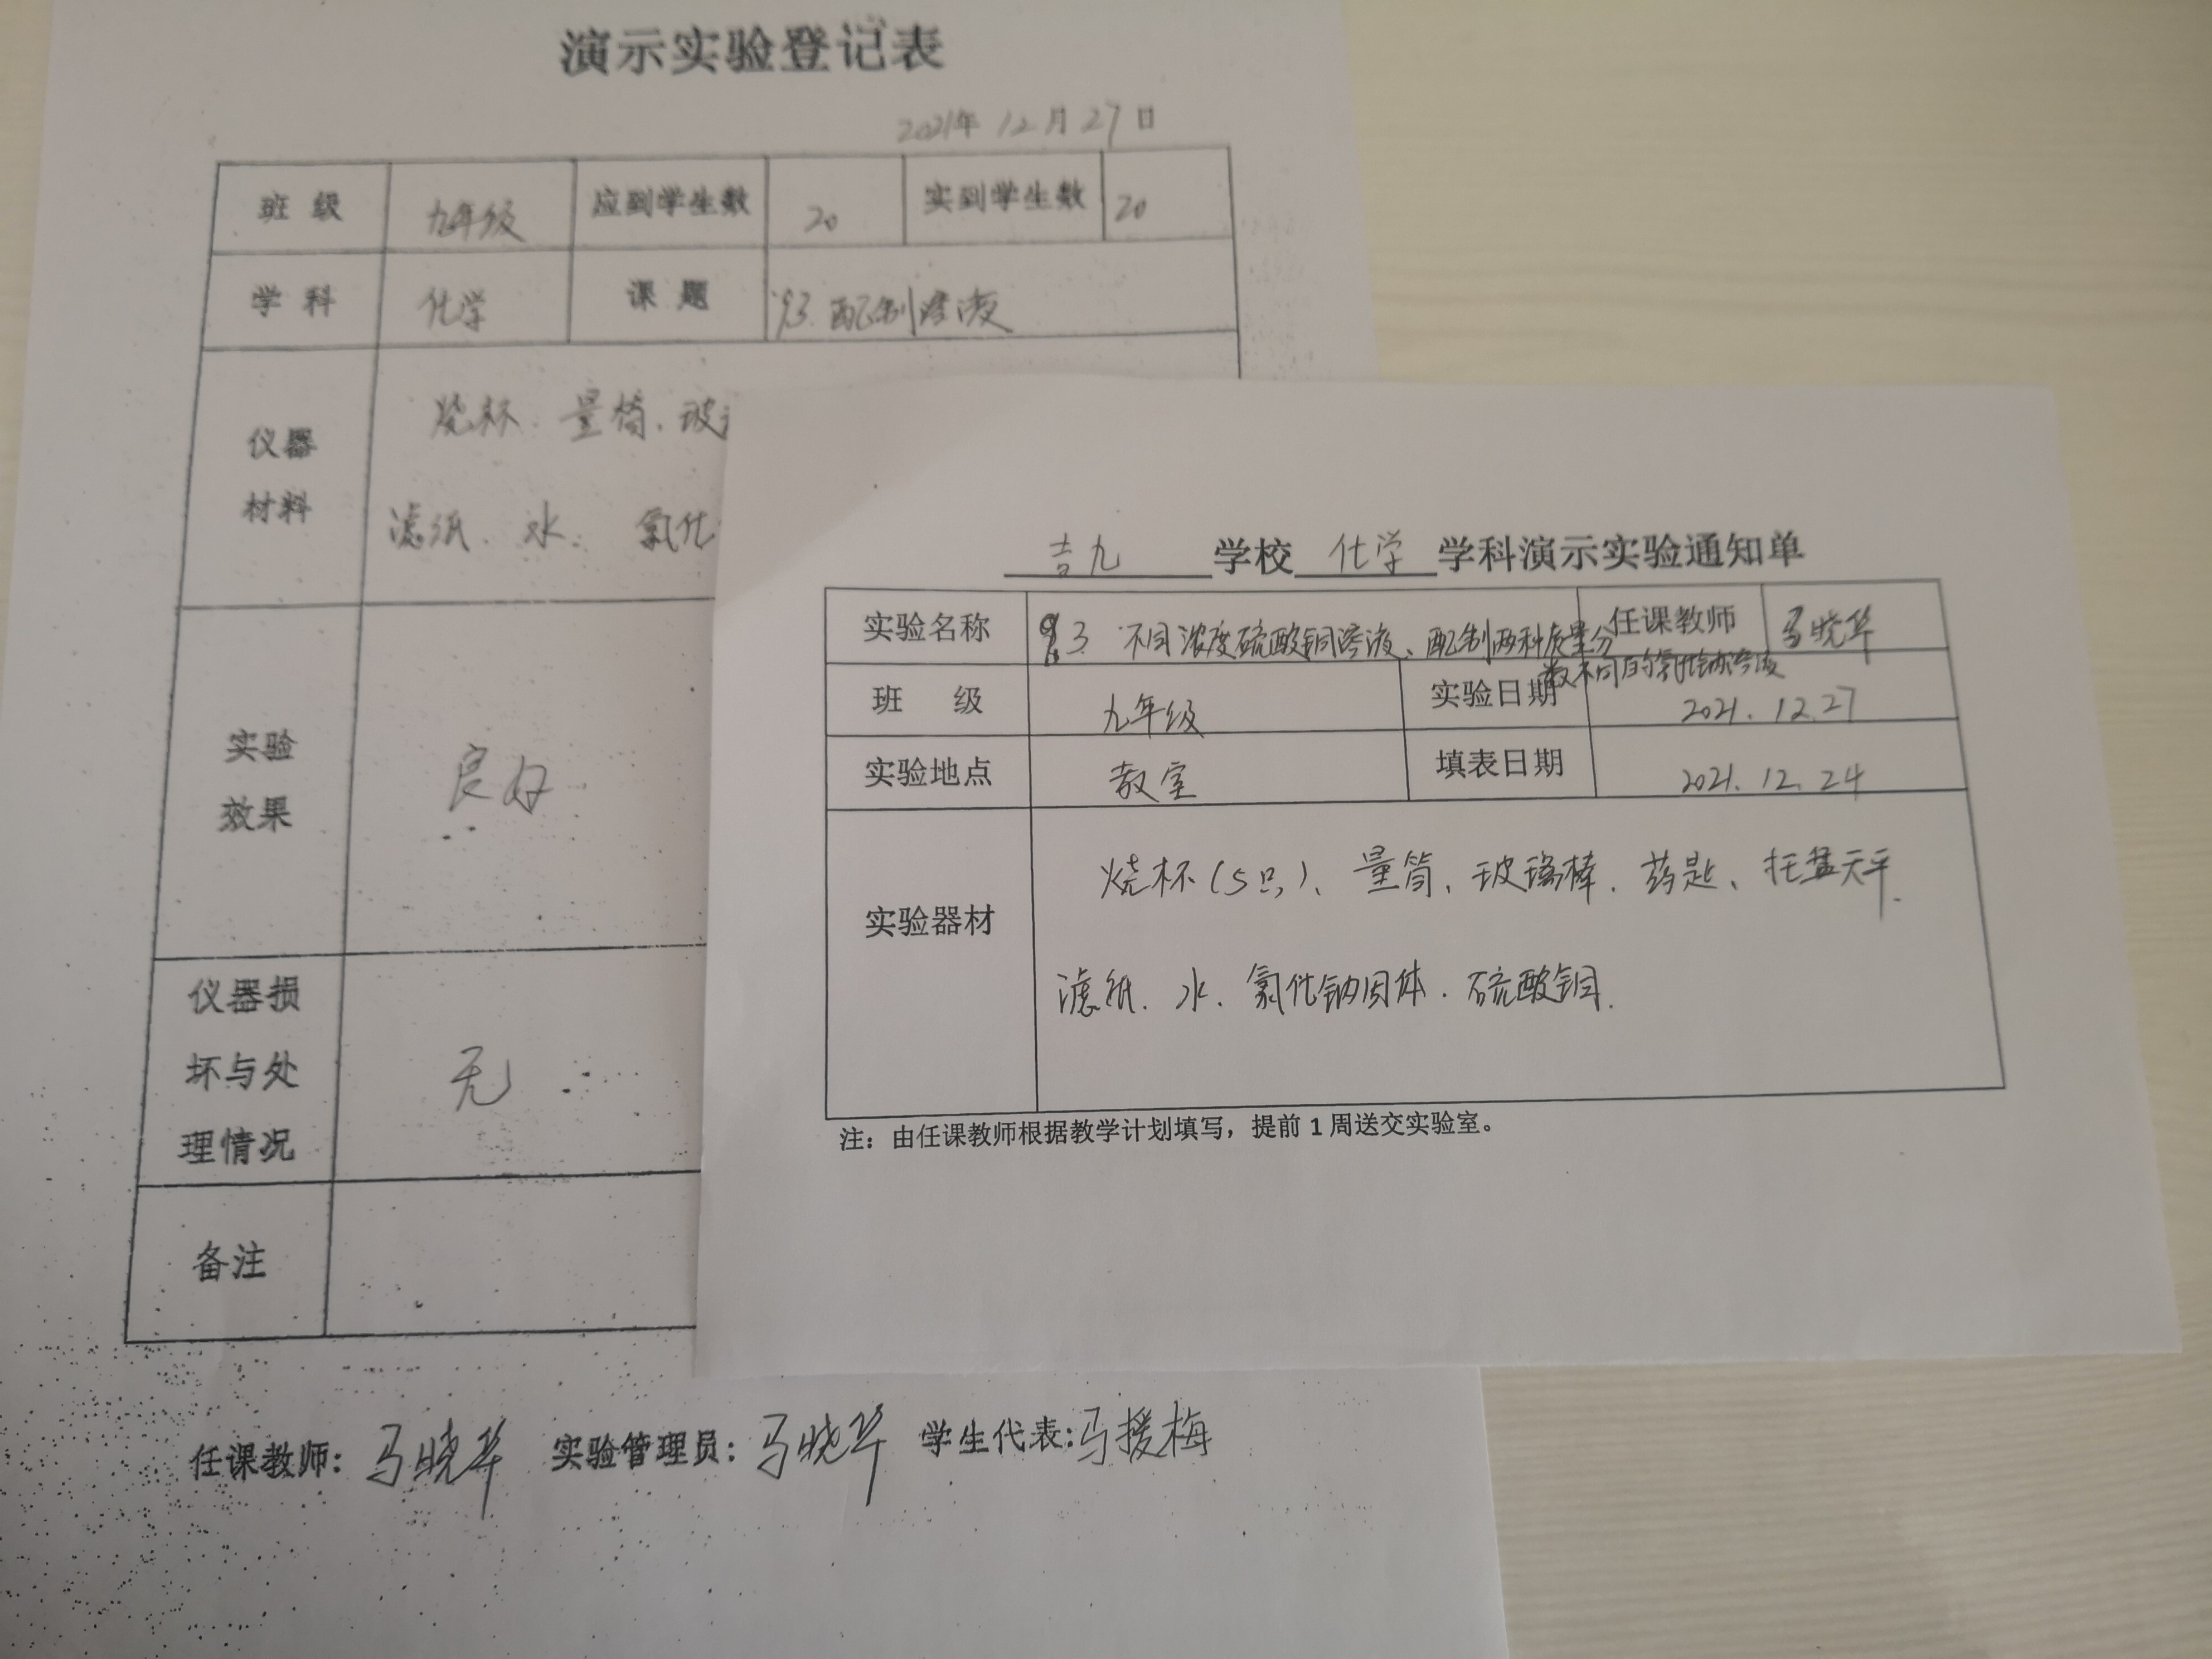 演示实验登记表
2021年 12 月 27 日
班 级 九年级 应到学生数 20 实到学生数 20
学 科 化学 课 题 9.3. 配制溶液
仪器
材料
烧杯. 量筒. 玻
滤纸. 水. 氯化
实验
效果
良好
仪器损
坏与处
理情况
无
备注
任课教师: 马晓华 实验管理员: 马晓华 学生代表: 马援梅
吉九 学校 化学 学科演示实验通知单
实验名称 9.3 不同浓度硫酸铜溶液、配制两种质量分
数不同的氯化钠溶液
任课教师 马晓华
班 级 九年级 实验日期 2021. 12. 27
实验地点 教室 填表日期 2021. 12. 24
实验器材
烧杯(5只)、量筒、玻璃棒. 药匙、托盘天平.
滤纸. 水. 氯化钠固体. 硫酸铜.
注：由任课教师根据教学计划填写，提前 1 周送交实验室。